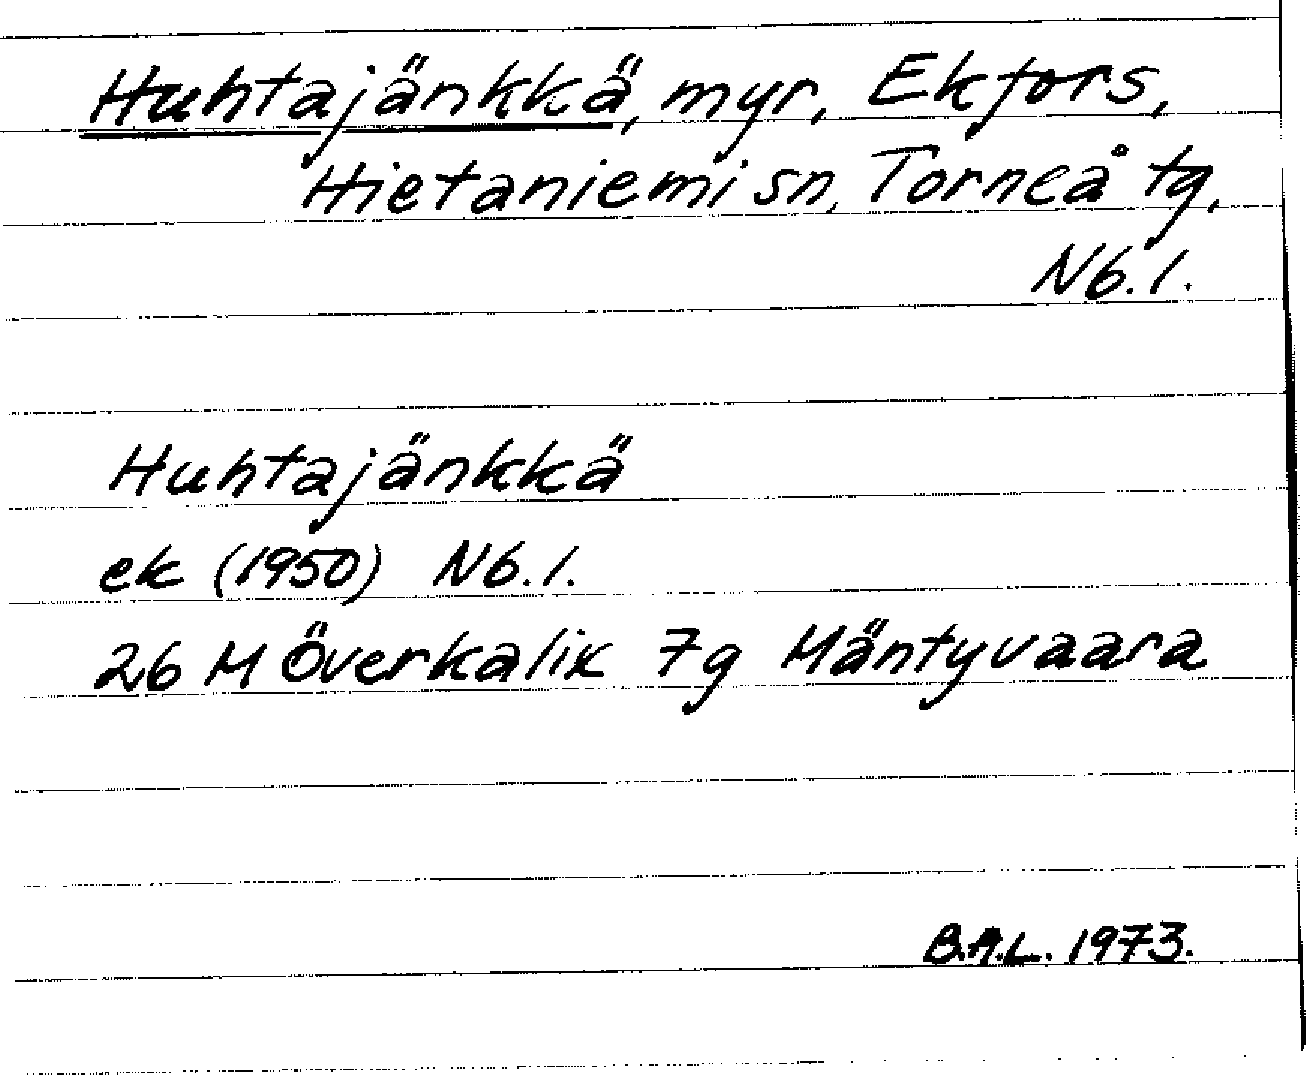 Huhtajänkkä, myr, Ekfors,
Hietaniemi sn, Torneå tg,
Nb. l.
Huhtajänkkä
ek (1950) Nb. l.
26 M Överkalix 7g Mäntyvaara
B.A.L. 1973.